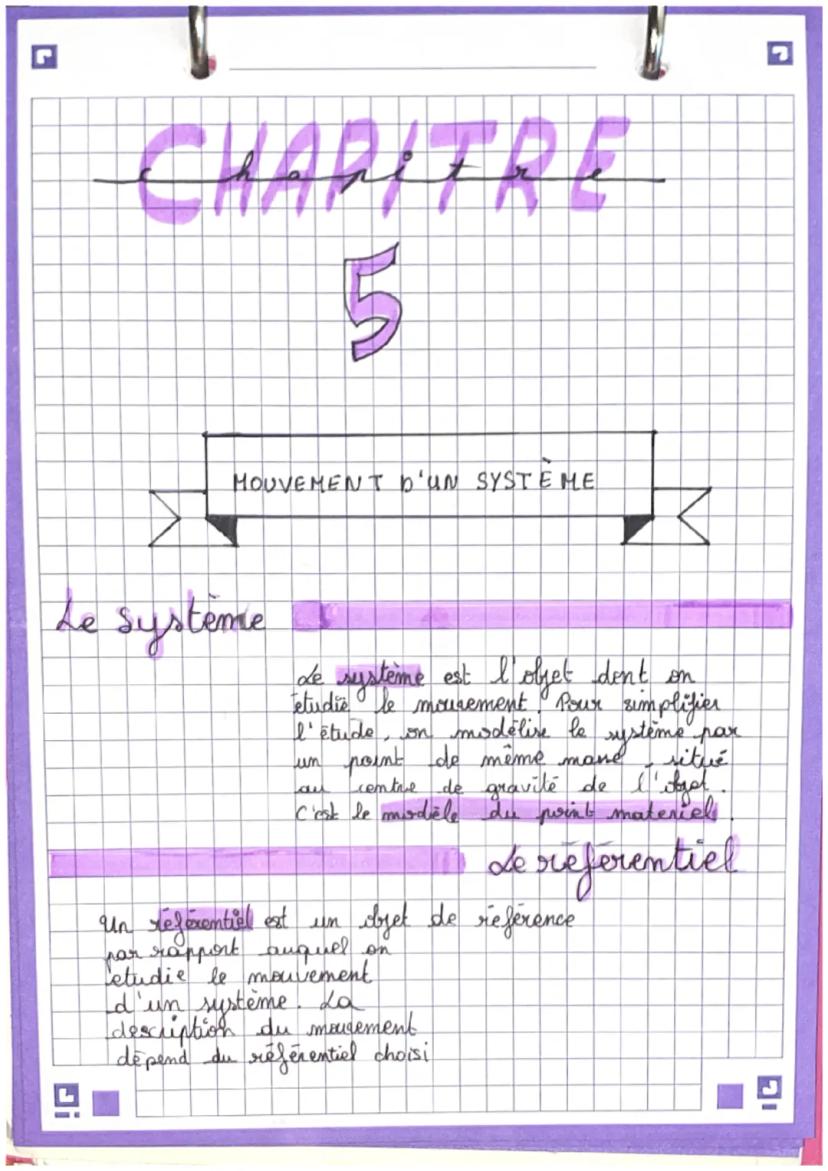 CHAPITRE
chapitre
5
MOUVEMENT D'UN SYSTÈME
Le système
Le système est l'objet dont on
étudie le mouvement. Pour simplifier
l'étude, on modélise le système par
un point de même masse, situé
au centre de gravité de l'objet.
C'est le modèle du point materiel.
Le référentiel
Un référentiel est un objet de référence
par rapport auquel on
étudie le mouvement
d'un système. La
description du mouvement
dépend du référentiel choisi